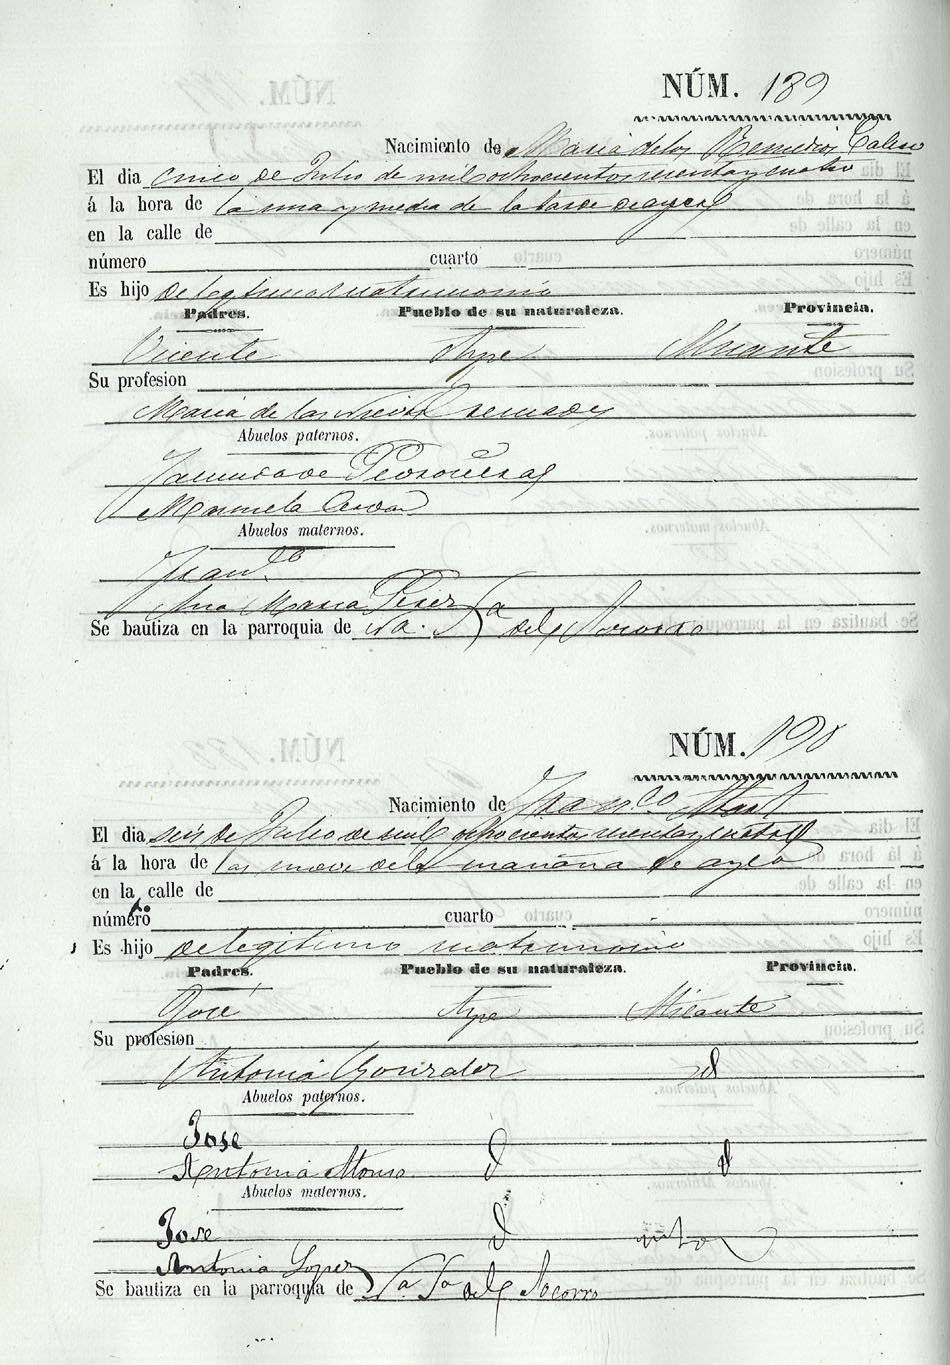 NÚM. 189
Nacimiento de Maria de los Remedios
El dia cinco de Julio de mil ochocientos sesenta y cuatro
á la hora de la una y media de la tarde de ayer
en la calle de
número cuarto
Es hijo de legitimo matrimonio
Padres. Pueblo de su naturaleza. Provincia.
Vicente Aspe Alicante
Su profesion
Maria de las Nieves
Abuelos paternos.
Manuela
Abuelos maternos.
Ana Maria Perez
Se bautiza en la parroquia de Sa. del Socorro
NÚM. 190
Nacimiento de Fran.co
El dia seis de Julio de mil ochocientos sesenta y cuatro
á la hora de las nueve de la mañana de ayer
en la calle de
número cuarto
Es hijo de legitimo matrimonio
Padres. Pueblo de su naturaleza. Provincia.
José Aspe Alicante
Su profesion
Antonia Gonzalez id
Abuelos paternos.
Jose
Antonia Alonso
Abuelos maternos.
José
Antonia Lopez
Se bautiza en la parroquia de Sa. del Socorro